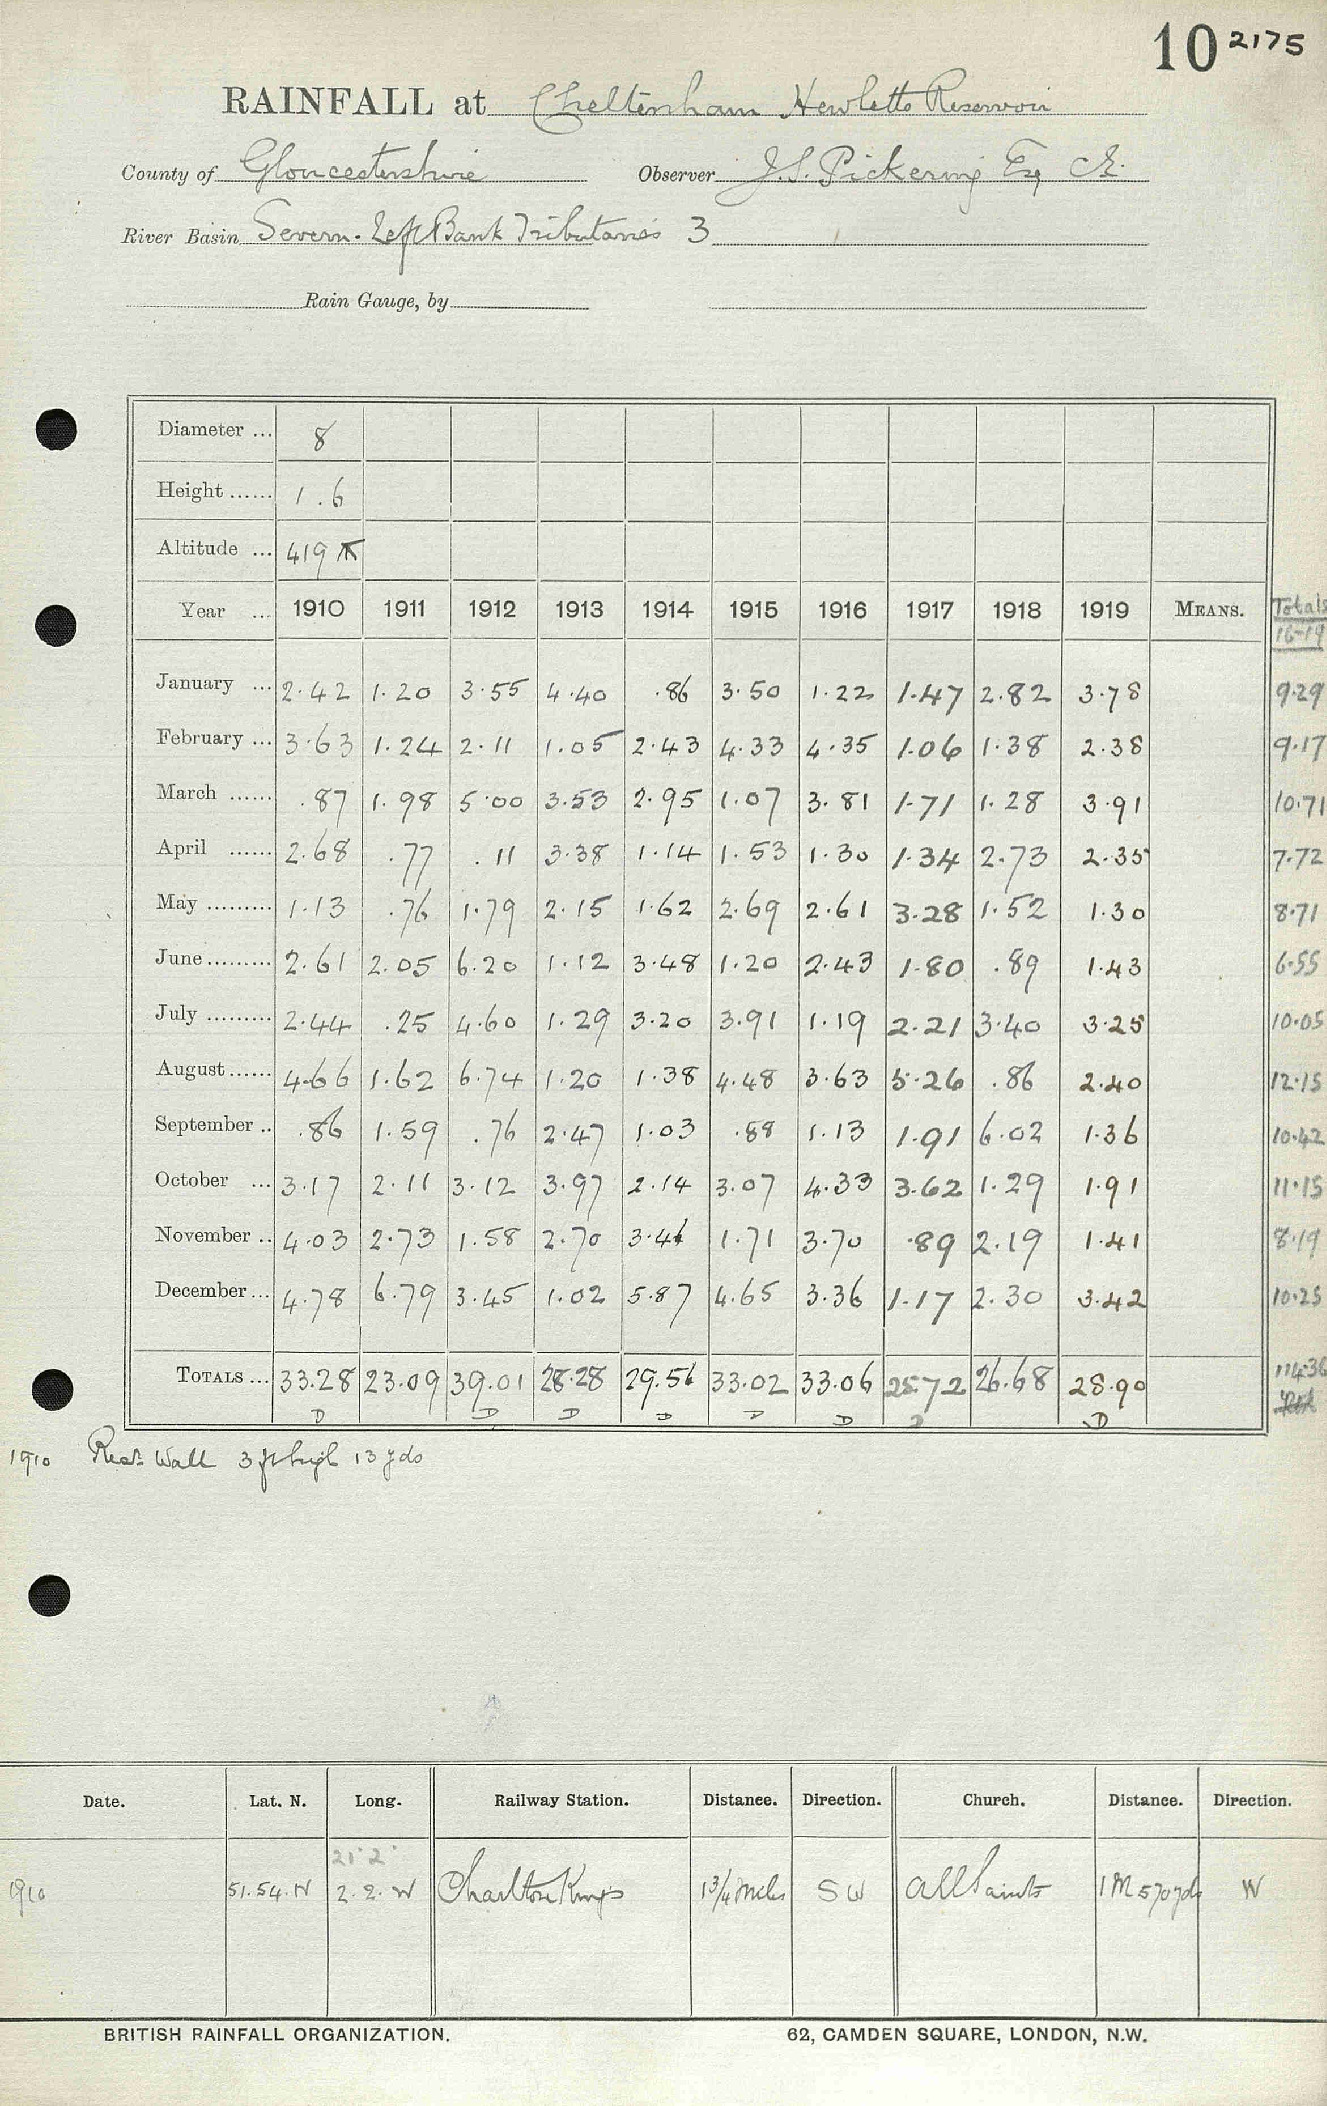 10 2175
RAINFALL at Cheltenham Hewletts Reservoir
County of Gloucestershire Observer J.S. Pickering Esq CE.
River Basin Severn. Left Bank Tributaries 3
Rain Gauge, by
Diameter ... 8
Height ...... 1.6
Altitude ... 419
Year ... 1910 1911 1912 1913 1914 1915 1916 1917 1918 1919 MEANS. Totals
16-19
January ... 2.42 1.20 3.55 4.40 .86 3.50 1.22 1.47 2.82 3.78 9.29
February ... 3.63 1.24 2.11 1.05 2.43 4.33 4.35 1.06 1.38 2.38 9.17
March ...... .87 1.98 5.00 3.53 2.95 1.07 3.81 1.71 1.28 3.91 10.71
April ...... 2.68 .77 .11 3.38 1.14 1.53 1.30 1.34 2.73 2.35 7.72
May ......... 1.13 .76 1.79 2.15 1.62 2.69 2.61 3.28 1.52 1.30 8.71
June ......... 2.61 2.05 6.20 1.12 3.48 1.20 2.43 1.80 .89 1.43 6.55
July ......... 2.44 .25 4.60 1.29 3.20 3.91 1.19 2.21 3.40 3.25 10.05
August ...... 4.66 1.62 6.74 1.20 1.38 4.48 3.63 5.26 .86 2.40 12.15
September .. .86 1.59 .76 2.47 1.03 .88 1.13 1.91 6.02 1.36 10.42
October ... 3.17 2.11 3.12 3.97 2.14 3.07 4.33 3.62 1.29 1.91 11.15
November .. 4.03 2.73 1.58 2.70 3.46 1.71 3.70 .89 2.19 1.41 8.19
December ... 4.78 6.79 3.45 1.02 5.87 4.65 3.36 1.17 2.30 3.42 10.25
TOTALS ... 33.28 23.09 39.01 28.28 29.56 33.02 33.06 25.72 26.68 28.90 114.36
D D D D D D D D
1910 Resr. Wall 3 ft high 13 yds
Date. Lat. N. Long. Railway Station. Distance. Direction. Church. Distance. Direction.
1910 51.54.N 2.2.W Charlton Kings 1 3/4 miles SW All Saints 1 M 570 yds W
BRITISH RAINFALL ORGANIZATION. 62, CAMDEN SQUARE, LONDON, N.W.